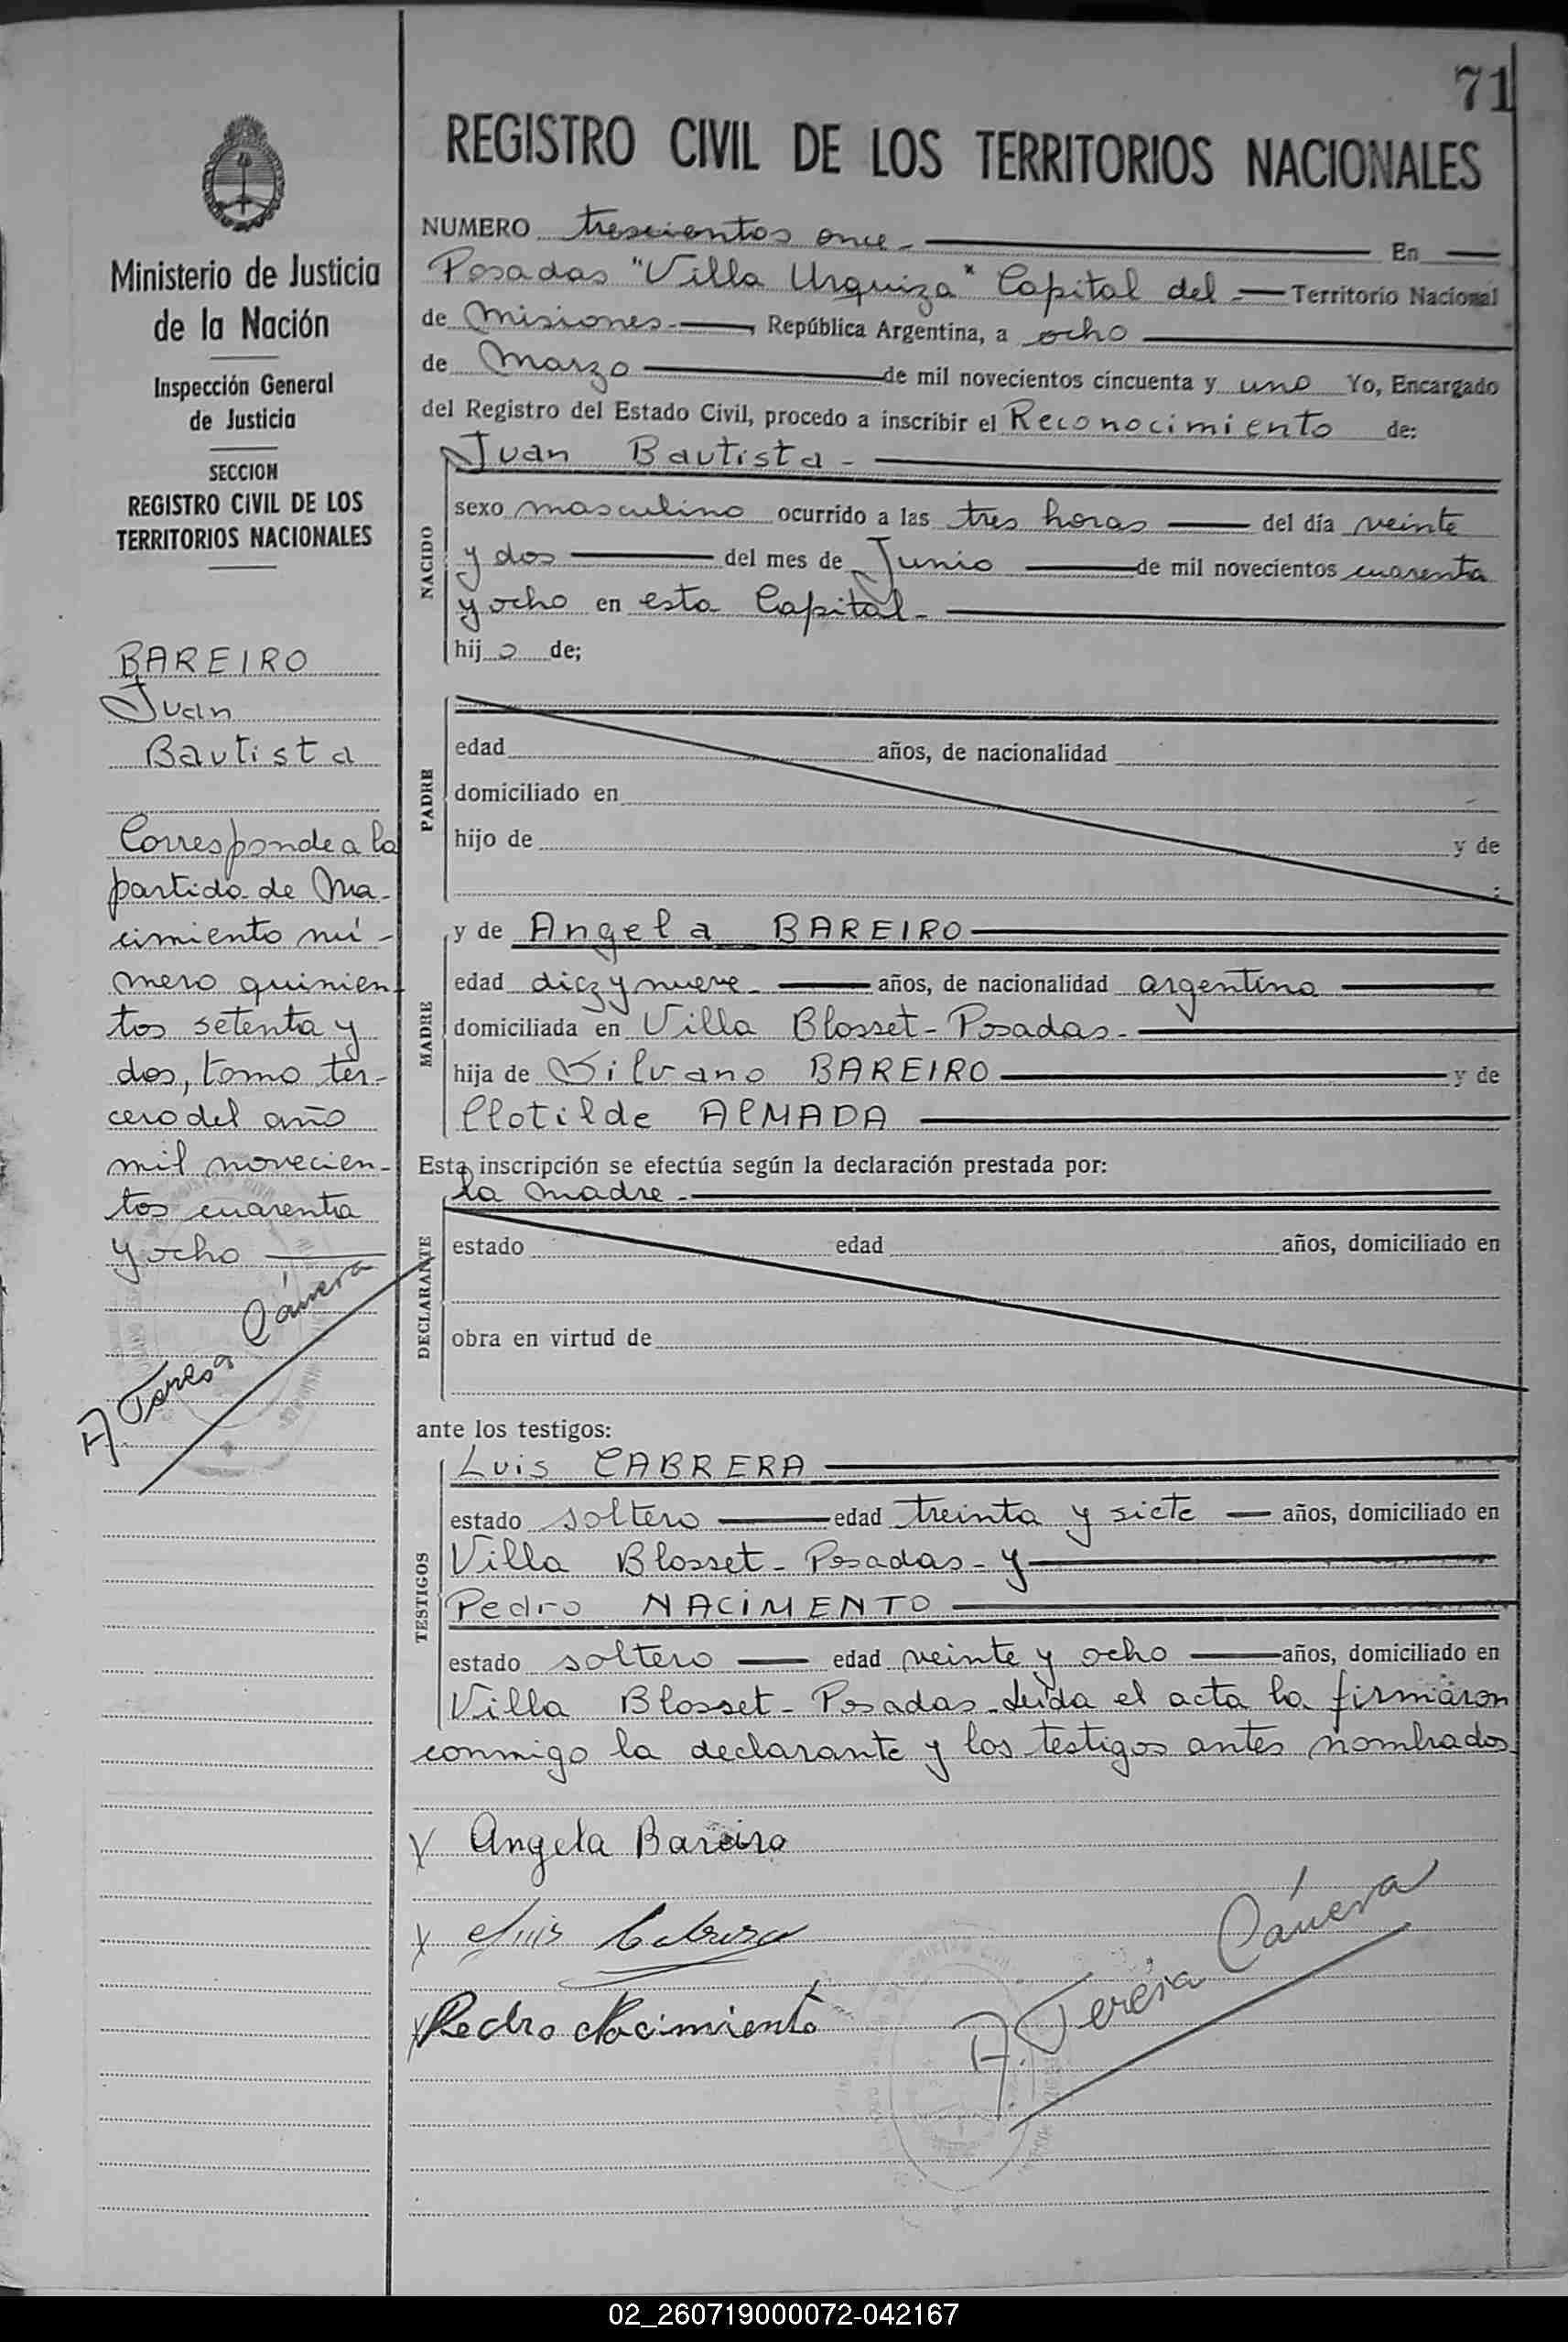 71
REGISTRO CIVIL DE LOS TERRITORIOS NACIONALES
Ministerio de Justicia
de la Nación
Inspección General
de Justicia
SECCION
REGISTRO CIVIL DE LOS
TERRITORIOS NACIONALES
BAREIRO
Juan
Bautista
Corresponde a la
partida de Na-
cimiento nú-
mero quinien-
tos setenta y
dos, tomo ter-
cero del año
mil novecien-
tos cuarenta
y ocho
A. Teresa
NUMERO trescientos once - En
Posadas "Villa Urquiza" Capital del - Territorio Nacional
de Misiones - , República Argentina, a ocho
de Marzo de mil novecientos cincuenta y uno Yo, Encargado
del Registro del Estado Civil, procedo a inscribir el Reconocimiento de:
Juan Bautista -
NACIDO
sexo masculino ocurrido a las tres horas del día veinte
y dos del mes de Junio de mil novecientos cuarenta
y ocho en esta Capital -
hijo de;
PADRE
edad años, de nacionalidad
domiciliado en
hijo de y de
;
MADRE
y de Angela BAREIRO
edad diez y nueve - años, de nacionalidad argentina
domiciliada en Villa Blosset - Posadas -
hija de Silvano BAREIRO y de
Clotilde ALMADA
Esta inscripción se efectúa según la declaración prestada por:
la madre -
DECLARANTE
estado edad años, domiciliado en
obra en virtud de
ante los testigos:
TESTIGOS
Luis CABRERA
estado soltero edad treinta y siete años, domiciliado en
Villa Blosset - Posadas - y
Pedro NACIMENTO
estado soltero edad veinte y ocho años, domiciliado en
Villa Blosset - Posadas - Leida el acta la firmaron
conmigo la declarante y los testigos antes nombrados.
X Angela Bareiro
X Luis Cabrera
X Pedro Nacimiento
A. Teresa
02_260719000072-042167